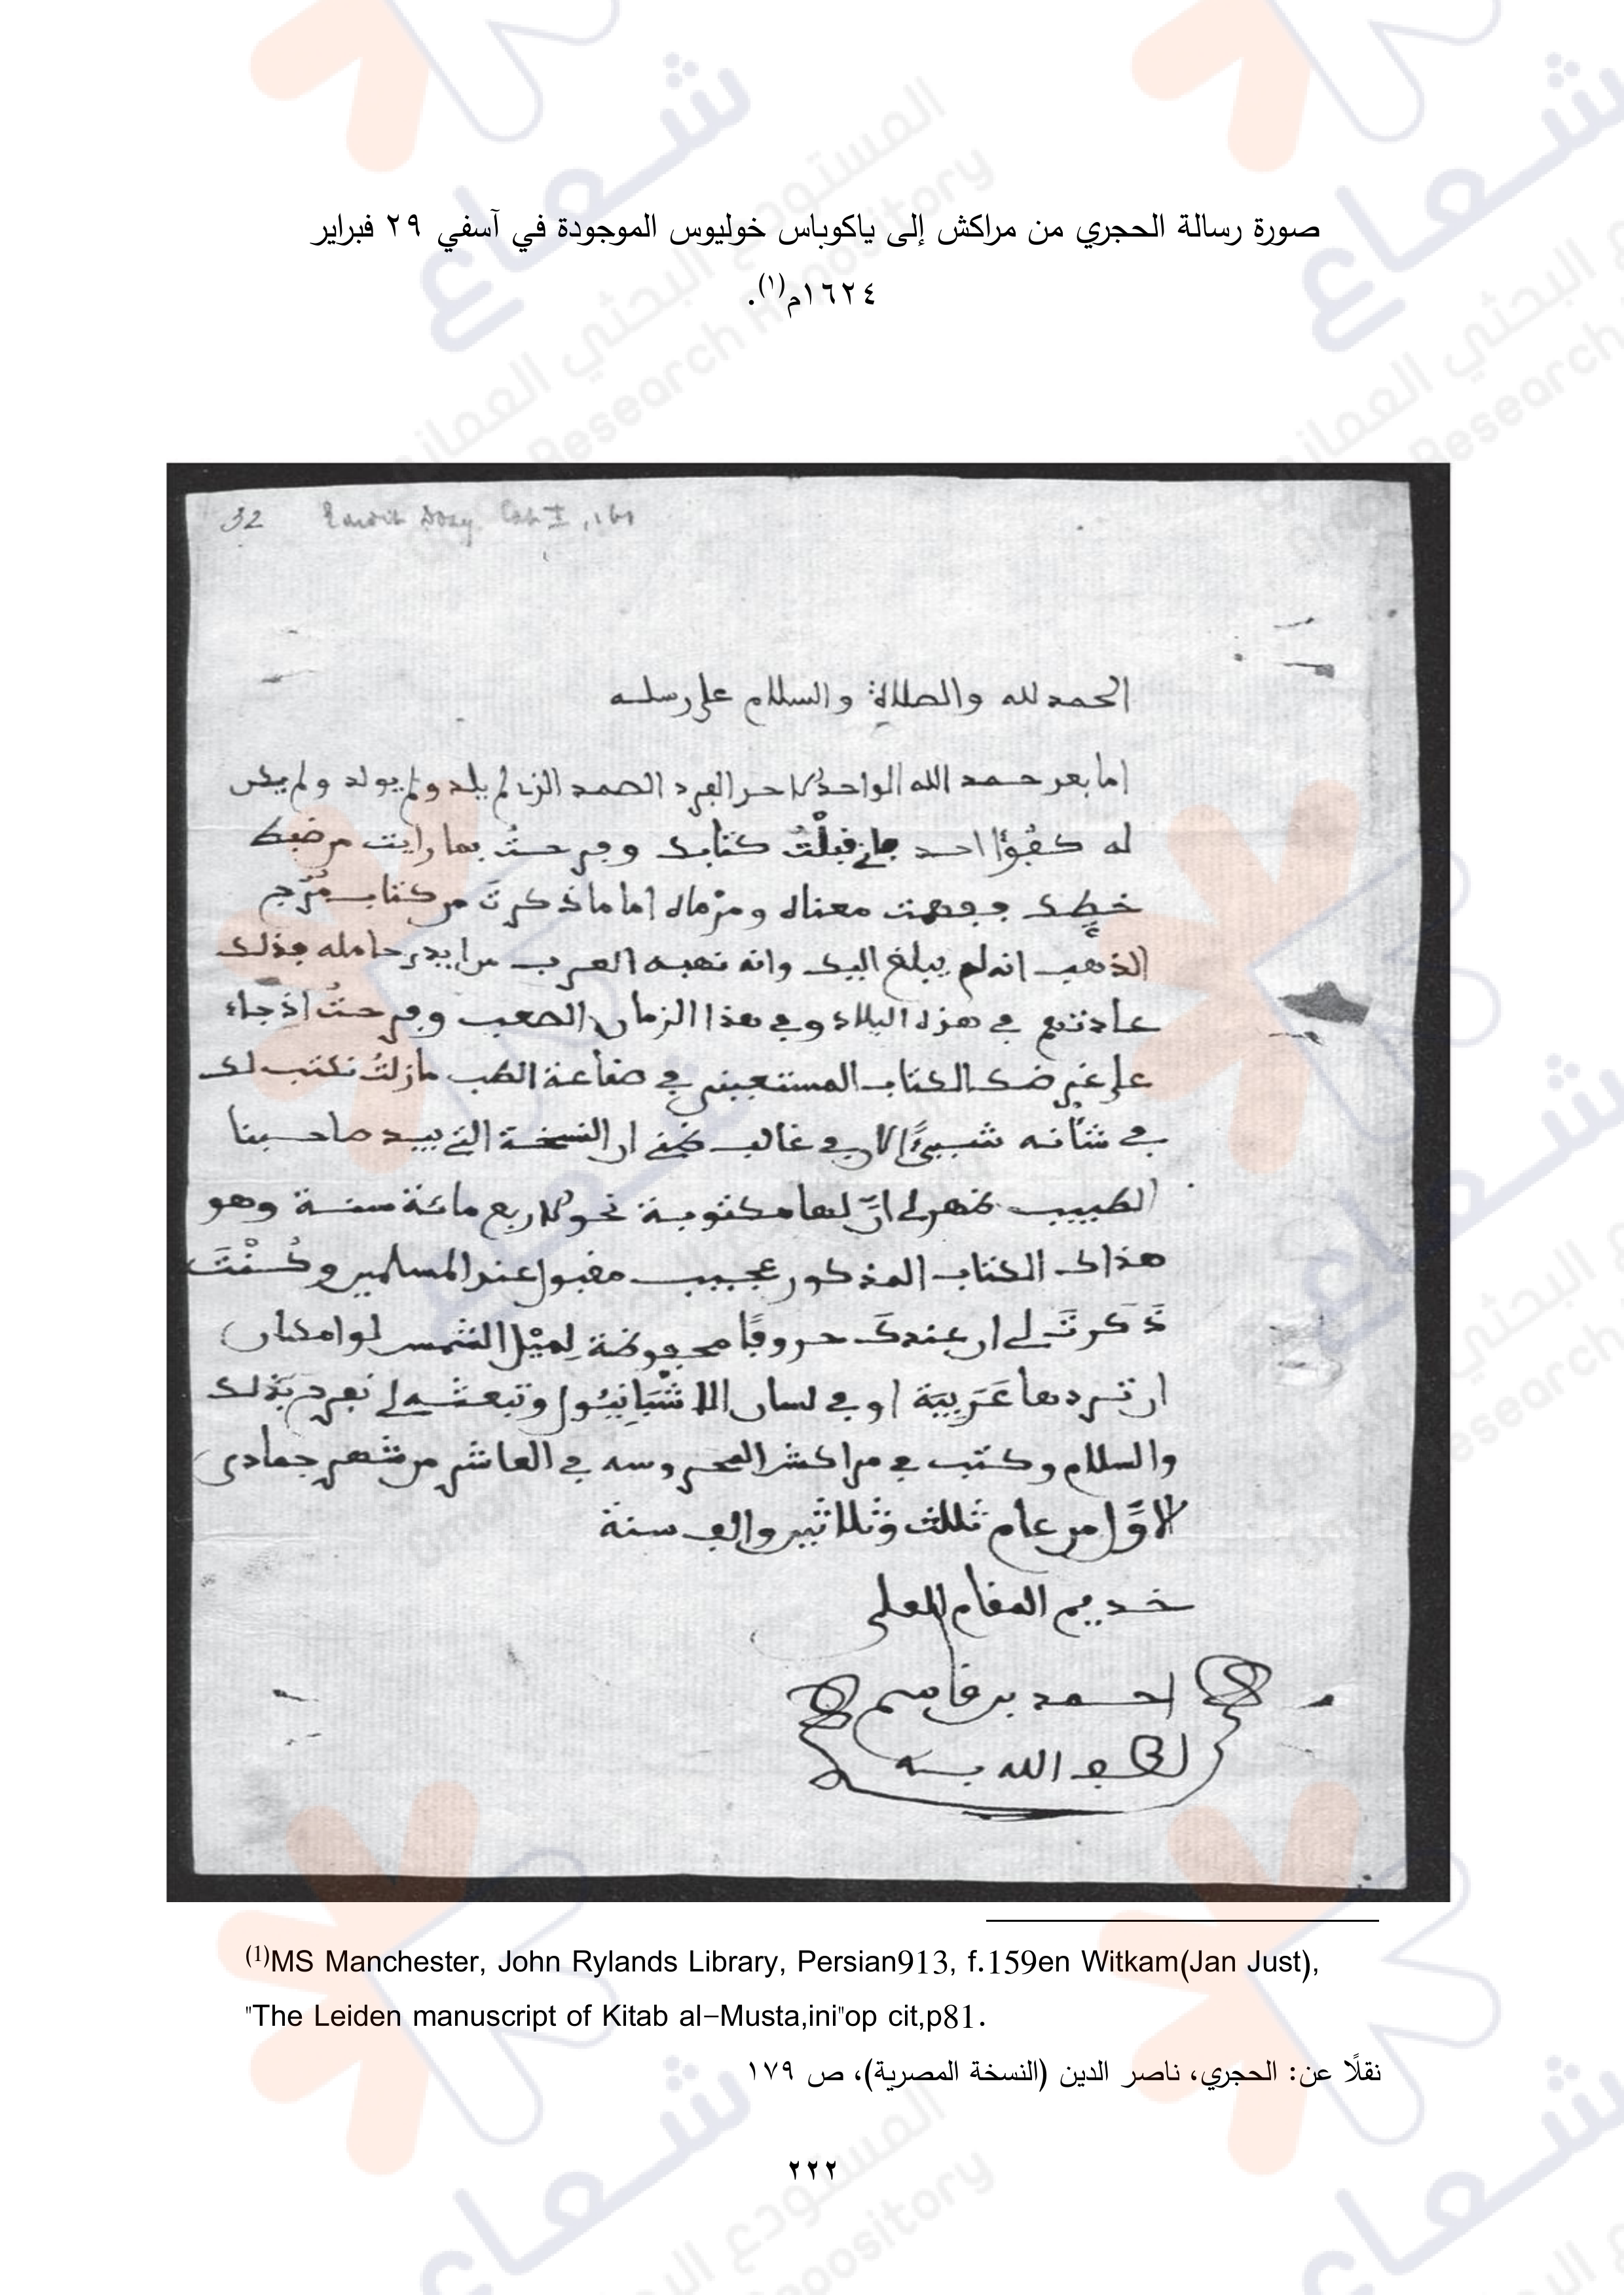 صورة رسالة الحجري من مراكش إلى ياكوباس خوليوس الموجودة في آسفي ٢٩ فبراير
١٦٢٤م(١).
32
الحمد لله والصلاة والسلام على رسله
اما بعد حمد الله الواحد الاحد الفرد الصمد الذي لم يلد ولم يولد ولم يكن
له كفؤا احد فانى قبلْتُ كتابك وفرحتُ بما رايت من ضبط
خطك ففهمت معناه ومرماه اما ما ذكرتَ من كتاب مُرُج
الذهب انه لم يبلغ اليك وانه نهبه العرب من ايدي حامله فذلك
عادتهم في هذه البلاد وفي هذا الزمان الصعب وفرحتُ اذ جاء
على غرضك الكتاب المستعيني في صناعة الطب مازلتُ نكتب لك
في شأنه شيئًا لان في غالب ظني ان النسخة التي بيد صاحبنا
الطبيب ظهر لي انّ لها مكتوبة نحو الاربع مائة سنة وهو
هذاك الكتاب المذكور عجيب مقبول عند المسلمين وكُنْتَ
ذَكَرتَ لي ان عندكَ حروفًا محفوظة لِمَيْل الشمس لو امكن
ان تردها عَرَبِيَة او في لسان الاشْبَانِيُول وتبعثه لي نفرح بذلك
والسلام وكتب في مراكش المحروسه في العاشر من شهر جمادى
الاوّل من عام ثلاث وثلاثين والف سنة
خديم المقام العلي
احمد بن قاسم
لطف الله به
(1)MS Manchester, John Rylands Library, Persian913, f.159en Witkam(Jan Just),
"The Leiden manuscript of Kitab al-Musta,ini"op cit,p81.
نقلًا عن: الحجري، ناصر الدين (النسخة المصرية)، ص ١٧٩
٢٢٢
شعاع
المستودع البحثي العماني
Research Repository